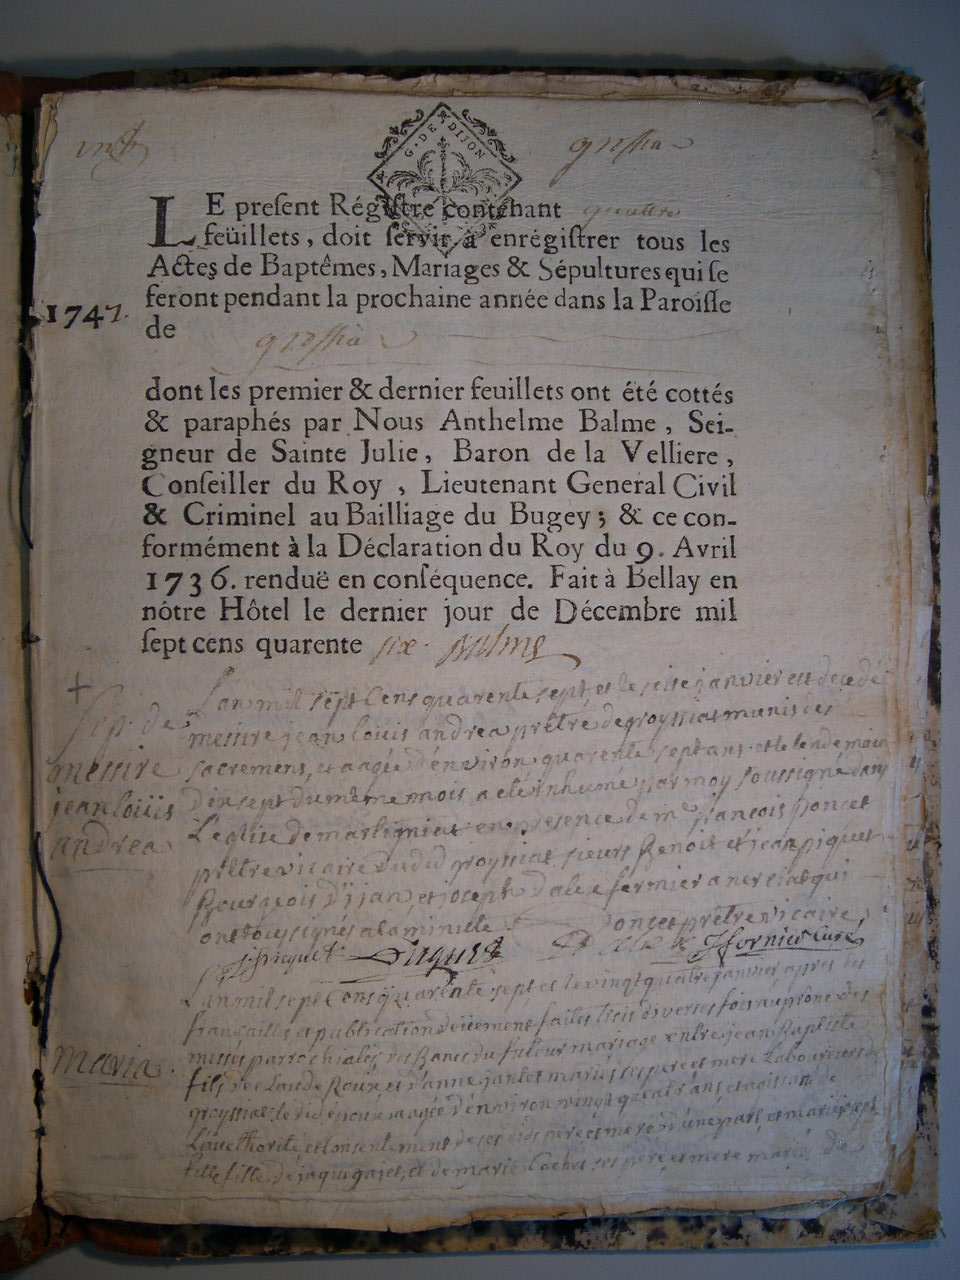 G. DE DIJON
groissia
LE present Régistre contenant quattre
feüillets, doit servir à enrégistrer tous les
Actes de Baptêmes, Mariages & Sépultures qui se
feront pendant la prochaine année dans la Paroisse
1747.
de groissia
dont les premier & dernier feuillets ont été cottés
& paraphés par Nous Anthelme Balme, Sei-
gneur de Sainte Julie, Baron de la Velliere,
Conseiller du Roy, Lieutenant General Civil
& Criminel au Bailliage du Bugey; & ce con-
formément à la Déclaration du Roy du 9. Avril
1736. renduë en conséquence. Fait à Bellay en
nôtre Hôtel le dernier jour de Décembre mil
sept cens quarente six. Balme
Sep. de
messire
jean loüis
andrea
L'an mil sept cens quarente sept et le seise janvier est decedé
messire jean loüis andrea prêtre de groyssiat munis des
sacremens, et aagée d'environ quarente sept ans et le lendemain
dixsept du même mois a été inhumé par moy soussigné dans
l'eglise de martignat en presence de mr françois poncet
prêtre vicaire dudit groyssiat sieurs Benoit et jean piquet
Bourgeois d'ijean, et joseph dalex fermier a nerciat qui
ont tous signés a la minutte poncet prêtre vicaire,
j piquet Piquet Cure
Maria.
L'an mil sept cens quarente sept et le vingt quatre janvier apres les
fiançailles et publication deüement faites trois diverses fois au prône des
messes parrochiales des Bancs du futeur mariage entre jean Baptiste
fils de Claude Roux et d'anne jantet mariés ses pere et mere Laboureurs de
groyssiat ledit epoux aagée d'environ vingt quatre ans et
l'authorité et consentement de ses dits pere et mere d'une part et
fille de jaque et de marie Cochet ses pere et mere mariés